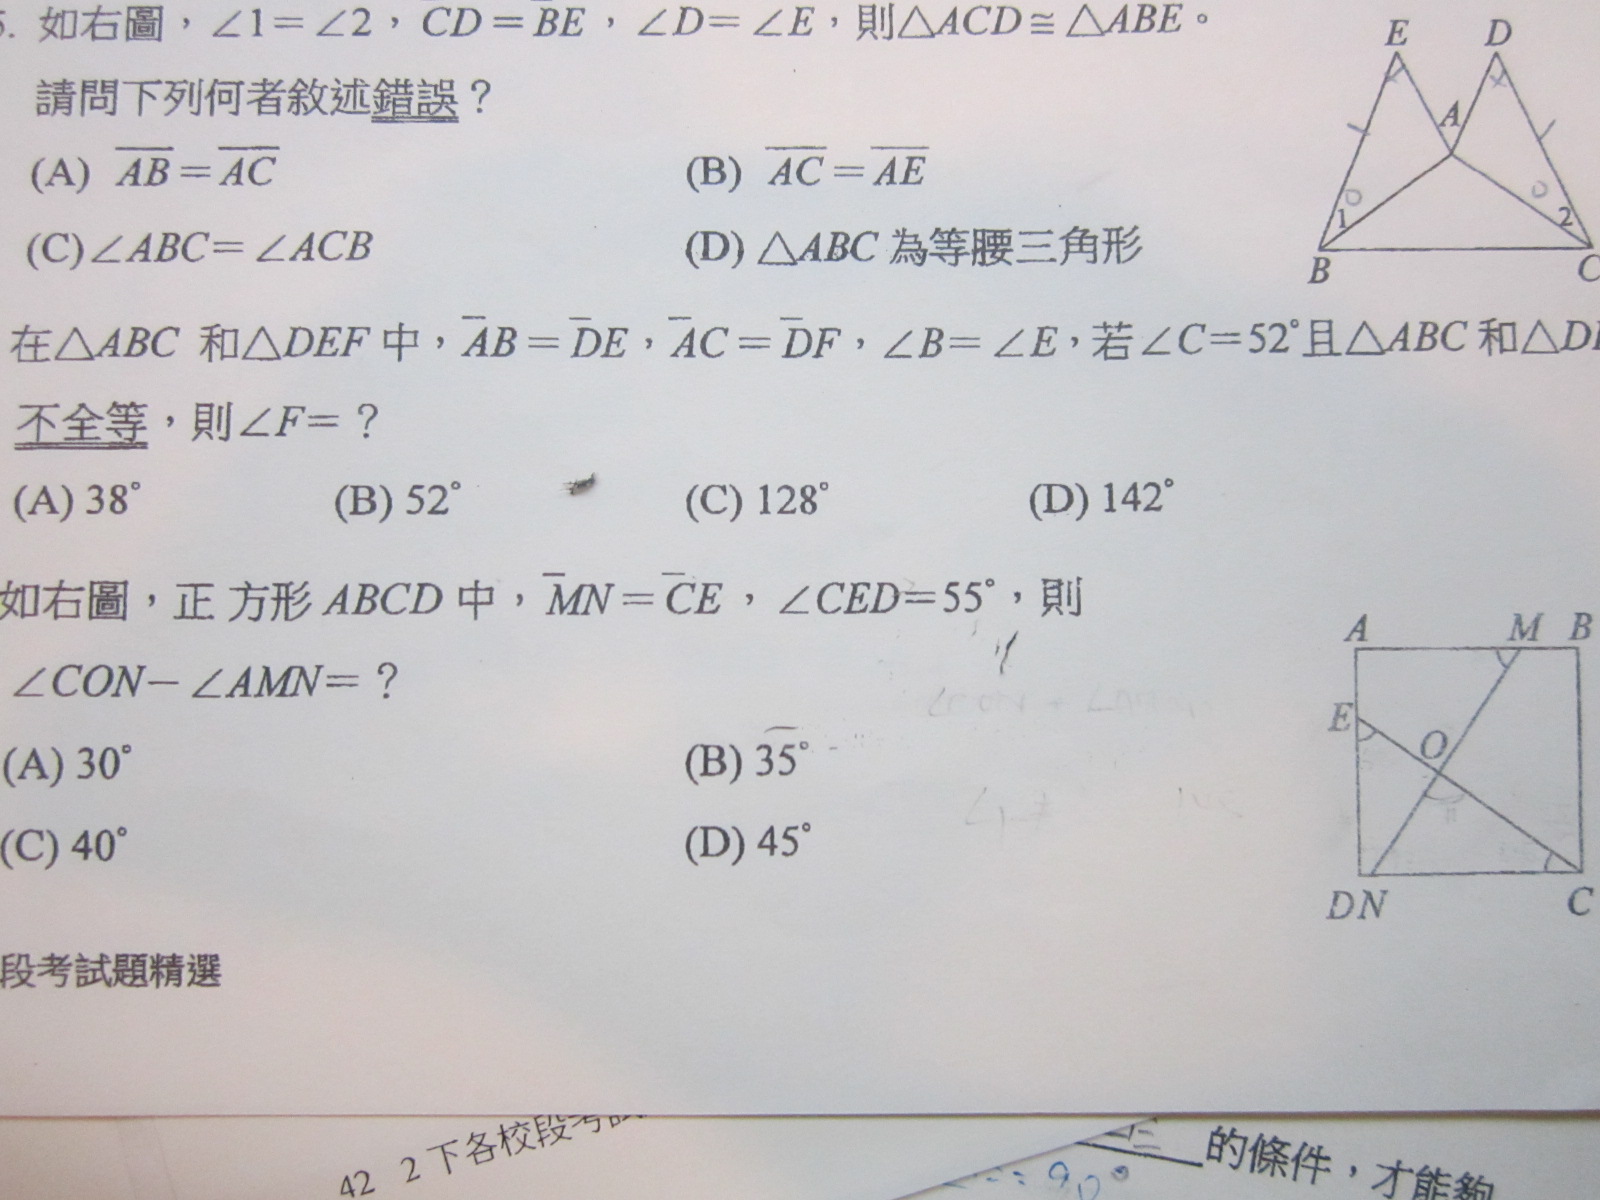 5. 如右圖，∠1＝∠2，CD＝BE，∠D＝∠E，則△ACD≅△ABE。
請問下列何者敘述錯誤？
(A) AB＝AC (B) AC＝AE
(C)∠ABC＝∠ACB (D) △ABC 為等腰三角形
E D
A
1 2
B C
在△ABC 和△DEF 中，AB＝DE，AC＝DF，∠B＝∠E，若∠C＝52°且△ABC 和△D
不全等，則∠F＝？
(A) 38° (B) 52° (C) 128° (D) 142°
如右圖，正方形 ABCD 中，MN＝CE，∠CED＝55°，則
∠CON－∠AMN＝？
(A) 30° (B) 35°
(C) 40° (D) 45°
A M B
E O
D N C
段考試題精選
42 2下各校段考試
的條件，才能夠
90°